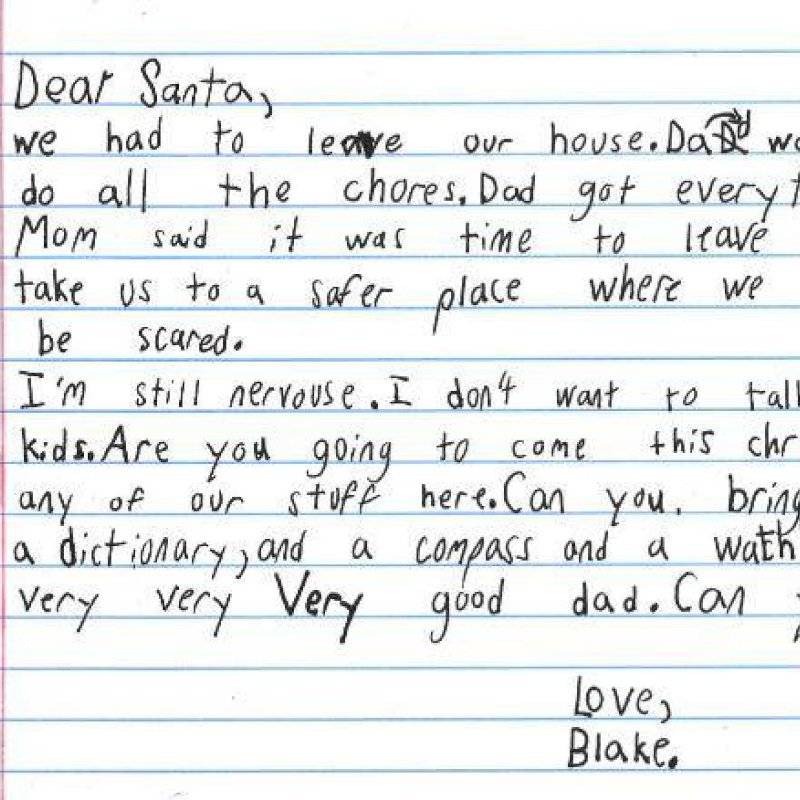 Dear Santa,
we had to leave our house. Dad
do all the chores. Dad got
Mom said it was time to leave
take us to a safer place where we
be scared.
I'm still nervouse. I don't want to
kids. Are you going to come this
any of our stuff here. Can you. bring
a dictionary, and a compass and a wath
very very Very good dad. Can
Love,
Blake.